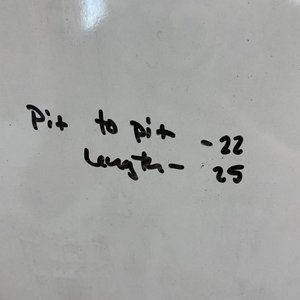 Pit to pit - 22
Length - 25